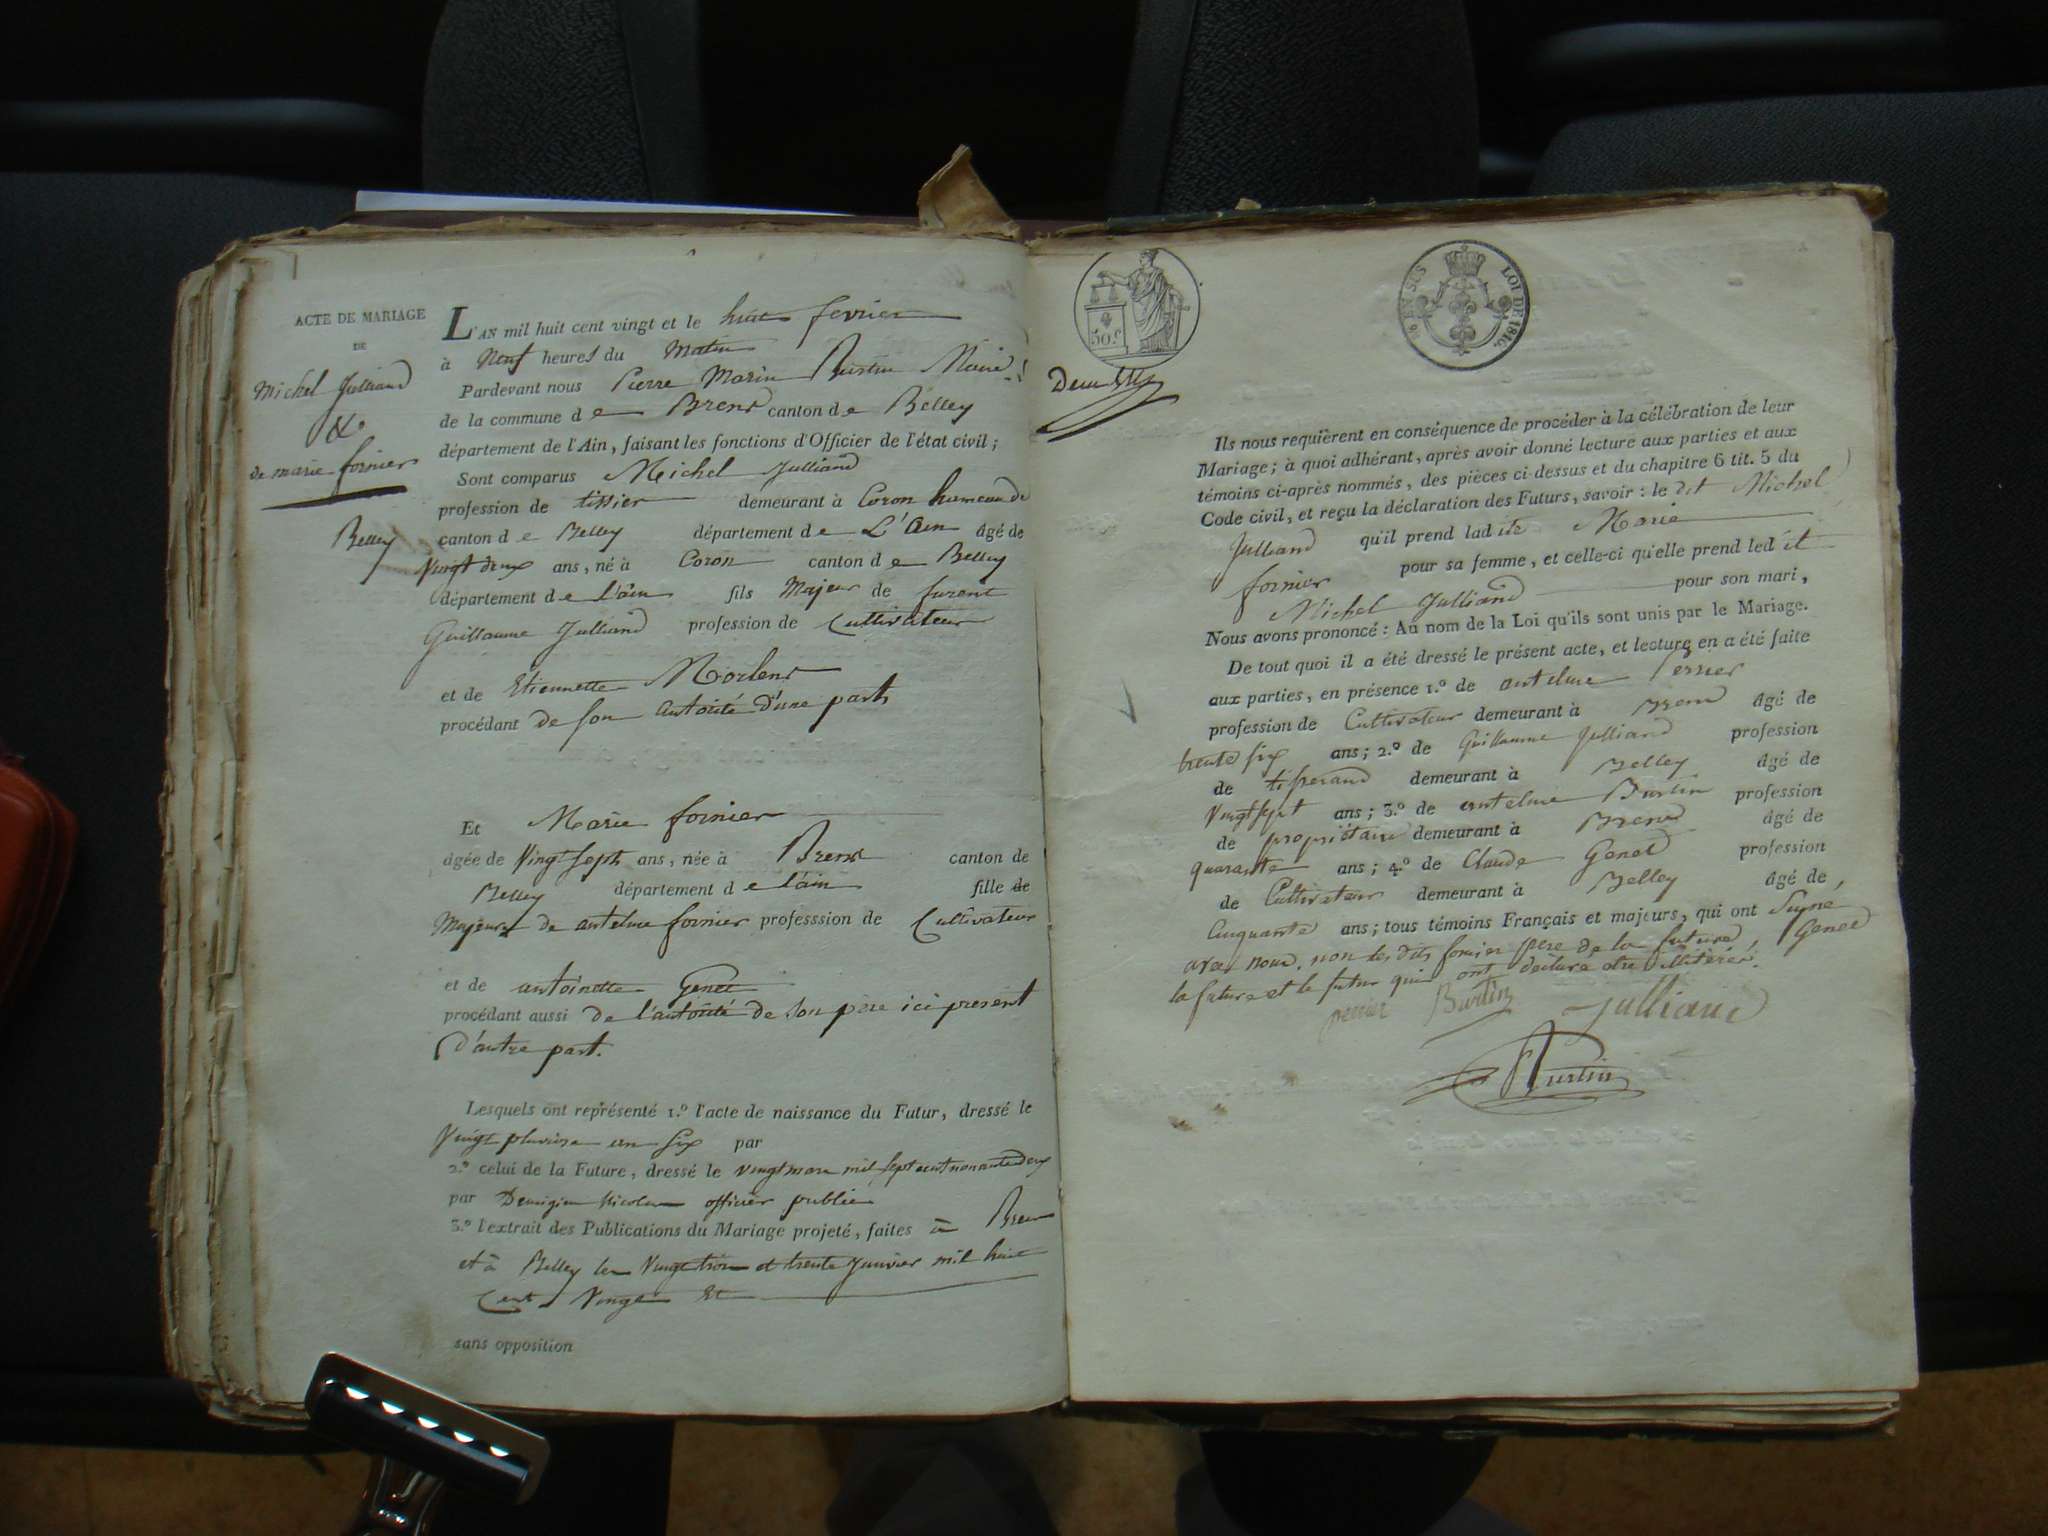 ACTE DE MARIAGE
DE
Michel Julliand
&
de marie fornier
Belley
L'AN mil huit cent vingt et le huit fevrier
à Neuf heures du Matin
Pardevant nous Pierre Marin Burtin Maire
de la commune de Brens canton de Belley
département de l'Ain, faisant les fonctions d'Officier de l'état civil;
Sont comparus Michel Julliand
profession de tissier demeurant à Coron hameau de
canton de Belley département de L'Ain âgé de
Vingt deux ans, né à Coron canton de Belley
département de l'ain fils Majeur de furent
Guillaume Julliand profession de Cultivateur
et de Etiennette Morlens
procédant de son autorité d'une part,
Et Marie fornier
âgée de Vingt sept ans, née à Brens canton de
Belley département de l'ain fille de
Majeure de antelme fornier professsion de Cultivateur
et de antoinette Genet
procédant aussi de l'autorité de son père ici présent
d'autre part.
Lesquels ont représenté 1.º l'acte de naissance du Futur, dressé le
Vingt pluviose an six par
2.º celui de la Future, dressé le vingt mars mil sept cent nonante deux
par Nicolas officier public
3.º l'extrait des Publications du Mariage projeté, faites à Brens
et à Belley les Vingt trois et trente Janvier mil huit
Cent Vingt Et
sans opposition
50 c.
6 EN SUS
LOI DE 1816.
Ils nous requièrent en conséquence de procéder à la célébration de leur
Mariage; à quoi adhérant, après avoir donné lecture aux parties et aux
témoins ci-après nommés, des pièces ci-dessus et du chapitre 6 tit. 5 du
Code civil, et reçu la déclaration des Futurs, savoir: le dit Michel
Julliand qu'il prend ladite Marie
fornier pour sa femme, et celle-ci qu'elle prend ledit
Michel Julliand pour son mari,
Nous avons prononcé: Au nom de la Loi qu'ils sont unis par le Mariage.
De tout quoi il a été dressé le présent acte, et lecture en a été faite
aux parties, en présence 1.º de antelme Perrier
profession de Cultivateur demeurant à Brens âgé de
trente six ans; 2.º de Guillaume Julliand profession
de tisserand demeurant à Belley âgé de
Vingt sept ans; 3.º de antelme Burtin profession
de propriétaire demeurant à Brens âgé de
quarante ans; 4.º de Claude Genet profession
de Cultivateur demeurant à Belley âgé de
Cinquante ans; tous témoins Français et majeurs, qui ont Signé
avec nous, non les dits fornier père de la future, Genet
la future et le futur qui ont déclaré être illitérés.
perrier Burtin Julliand
Burtin